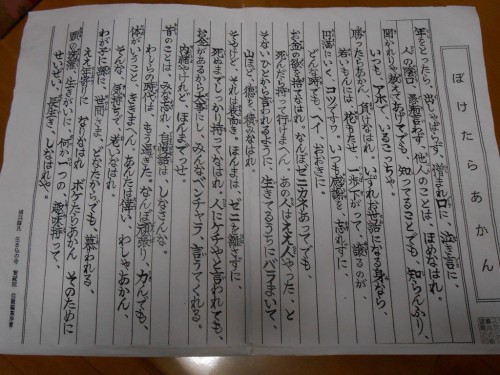 ぼけたらあかん
年をとったら 出しゃばらず 憎まれ口に 泣き言に
人の陰口 愚痴言わず、他人のことは、ほめなはれ。
聞かれりゃ教えてあげてでも、知ってることでも、知らんふり、
いつも、アホで、いるこっちゃ。
勝ったらあかん、負けなはれ。いずれお世話になる身なら、
若いもんには、花もたせ 一歩下がって、譲るのが
円満にいく、コツですわ。いつも感謝を、忘れずに、
どんな時でも、ヘイ、おおきに
お金の欲を捨てなはれ、なんぼゼニカネあってでも、
死んだら持って行けまへん。あの人はええ人やった、と
そないひとから言われるように、生きてるうちにバラまいて、
山ほど、徳を、積みなはれ。
そやけど、それは表向き、ほんまは、ゼニを離さずに、
死ぬまでしっかり持ってなはれ、人にケチやと言われても、
お金があるから大事にし、みんな、ベンチャラ、言うてくれる。
内緒やけれど、ほんまでっせ。
昔のことは、みな忘れ 自慢話は、しなさんな、
わしらの時代は、もう過ぎた。なんぼ頑張り、力んでも、
体がいうこと、ききまへん、あんたは偉い、わしゃあかん、
そんな、気持ちで、老いなはれ
わが子に孫に、世間さま、どなたからでも、慕われる、
ええ年寄りに、なりなはれ ボケたらあかん そのために
頭の洗濯、生きがいに、何か一つの、趣味持って、
せいぜい、長生き、しなはれや。